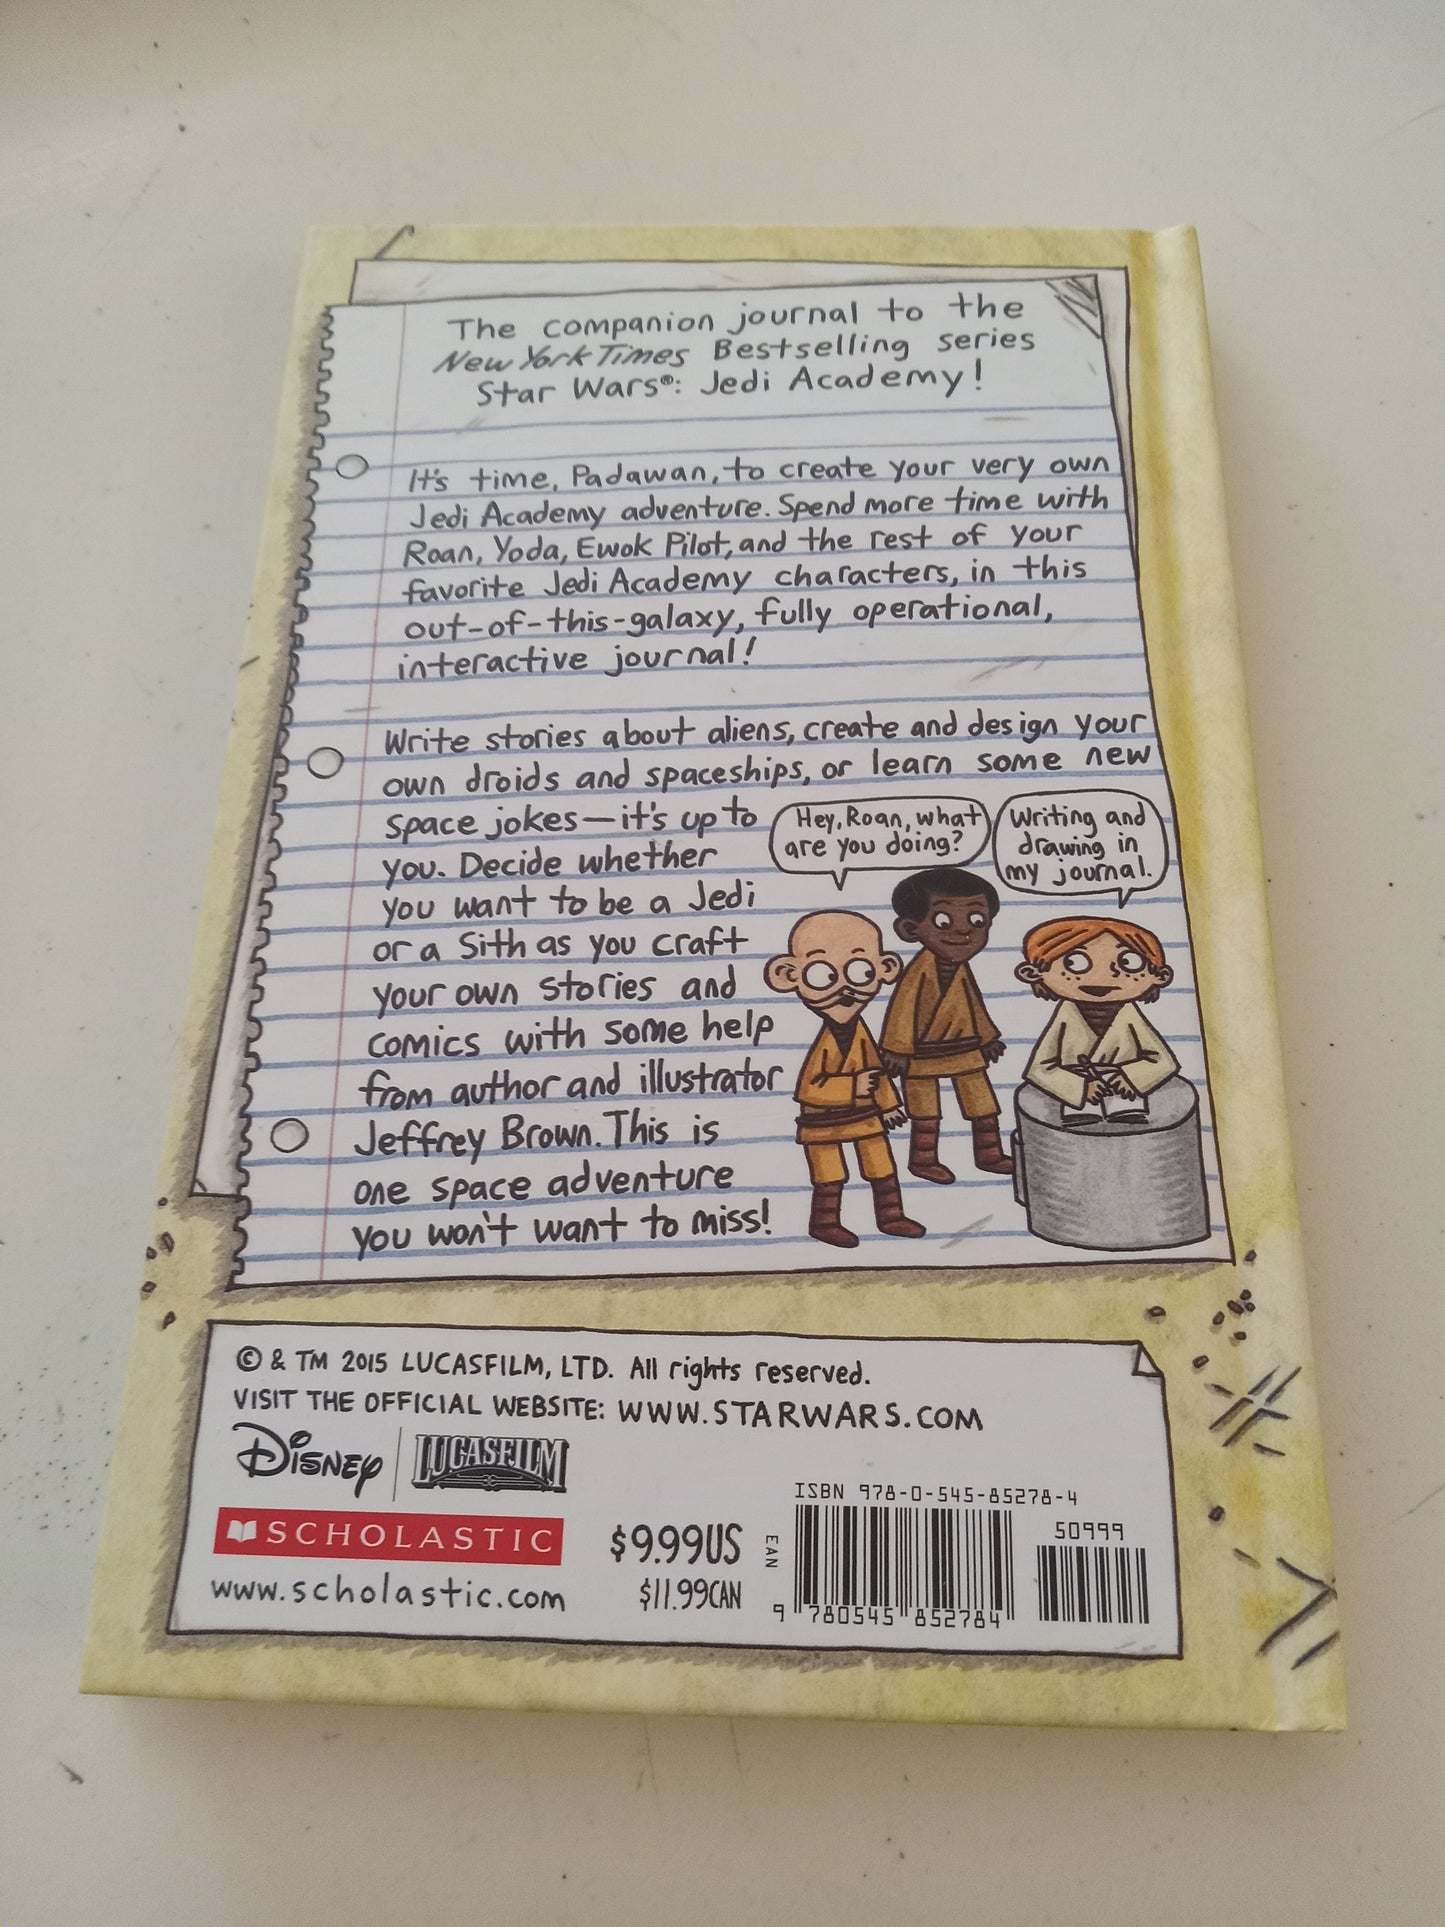 The companion journal to the
New York Times Bestselling series
Star Wars®: Jedi Academy!
It's time, Padawan, to create your very own
Jedi Academy adventure. Spend more time with
Roan, Yoda, Ewok Pilot, and the rest of your
favorite Jedi Academy characters, in this
out-of-this-galaxy, fully operational,
interactive journal!
Write stories about aliens, create and design your
own droids and spaceships, or learn some new
space jokes—it's up to
you. Decide whether
you want to be a Jedi
or a Sith as you craft
your own stories and
comics with some help
from author and illustrator
Jeffrey Brown. This is
one space adventure
you won't want to miss!
Hey, Roan, what
are you doing?
Writing and
drawing in
my journal.
© & TM 2015 LUCASFILM, LTD. All rights reserved.
VISIT THE OFFICIAL WEBSITE: WWW.STARWARS.COM
Disney
LUCASFILM
SCHOLASTIC
www.scholastic.com
$9.99US
$11.99CAN
EAN
ISBN 978-0-545-85278-4
50999
9 780545 852784